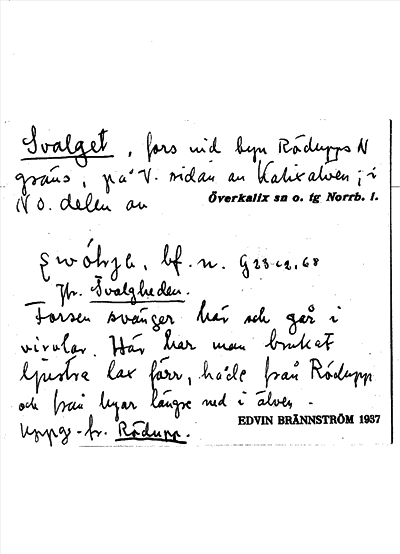 Svalget, fors vid byn Rödupps N
gräns, på V. sidan av Kalixälven; i
N O. delen av Överkalix sn o. tg Norrb. l.
bf. n.
Jfr. Svalgheden.
Forsen svänger här och går i
virvlar. Här har man brukat
ljustra lax förr, både från Rödupp
och från byar längre ned i älven.
Uppg. fr. Rödupp. EDVIN BRÄNNSTRÖM 1937